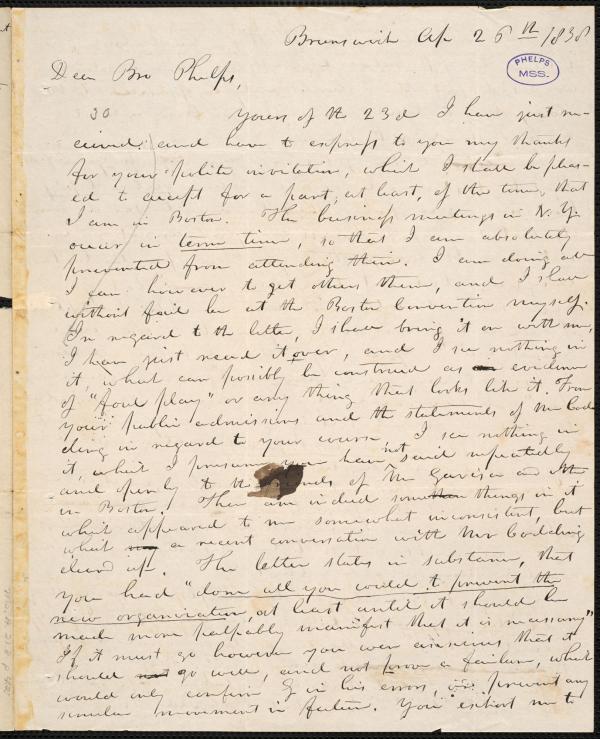 Brunswick Ap 26th 1838
PHELPS
MSS.
Dear Bro Phelps,
30 Yours of the 23d I have just re-
ceived, and have to express to you my thanks
for your polite invitation, which I shall be pleas-
ed to accept for a part, at least, of the time, that
I am in Boston. The business meetings in N. Y.
occur in term time, so that I am absolutely
prevented from attending them. I am doing all
I can however to get others there, and I shall
without fail be at the Boston Convention myself.
In regard to the letter, I shall bring it on with me,
I have just read it over, and I see nothing in
it, what can possibly be construed as evidence
of "foul play" or any thing that looks like it. From
your public admissions and the statements of Mr Cod
ding in regard to your course, I see nothing in
it, which I presume you have not said repeatedly
and openly to the friends of Mr Garrison and others
in Boston. There are indeed some things in it
which appeared to me somewhat inconsistent, but
what a recent conversation with Mr Codding
cleared up. The letter states in substance, that
you had "done all you could to prevent the
new organization, at least until it should be
made more palpably manifest that it is necessary"
If it must go however you were anxious that it
should go well, and not prove a failure, which
would only confirm G in his errors, prevent any
similar movement in future. You exhort me to